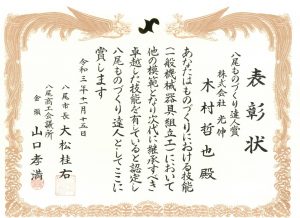 表彰状
八尾ものづくり達人賞
株式会社 光伸
木村哲也 殿
あなたはものづくりにおける技能
(一般機械器具組立工)において
他の模範となり次代に継承すべき
卓越した技能を有していると認定し
八尾ものづくり達人としてここに
賞します
令和三年十一月十五日
八尾市長 大松桂右
八尾商工会議所
会頭 山口孝満